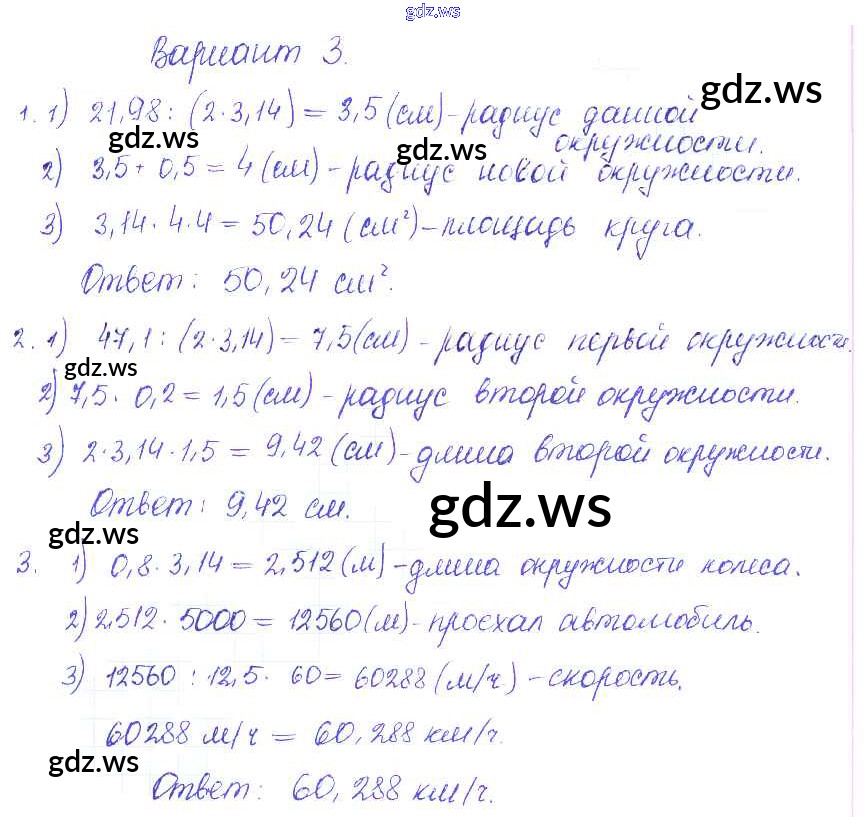 gdz.ws
Вариант 3.
gdz.ws
1. 1) 21,98 : (2·3,14) = 3,5 (см) - радиус данной
окружности.
gdz.ws
gdz.ws
2) 3,5 + 0,5 = 4 (см) - радиус новой окружности.
3) 3,14 · 4 · 4 = 50,24 (см²) - площадь круга.
Ответ: 50,24 см².
2. 1) 47,1 : (2·3,14) = 7,5 (см) - радиус первой окружности.
gdz.ws
2) 7,5 · 0,2 = 1,5 (см) - радиус второй окружности.
3) 2·3,14·1,5 = 9,42 (см) - длина второй окружности.
Ответ: 9,42 см.
gdz.ws
gdz.ws
3. 1) 0,8 · 3,14 = 2,512 (м) - длина окружности колеса.
2) 2,512 · 5000 = 12560 (м) - проехал автомобиль.
3) 12560 : 12,5 · 60 = 60288 (м/ч) - скорость.
60288 м/ч = 60,288 км/ч.
gdz.ws
Ответ: 60,288 км/ч.